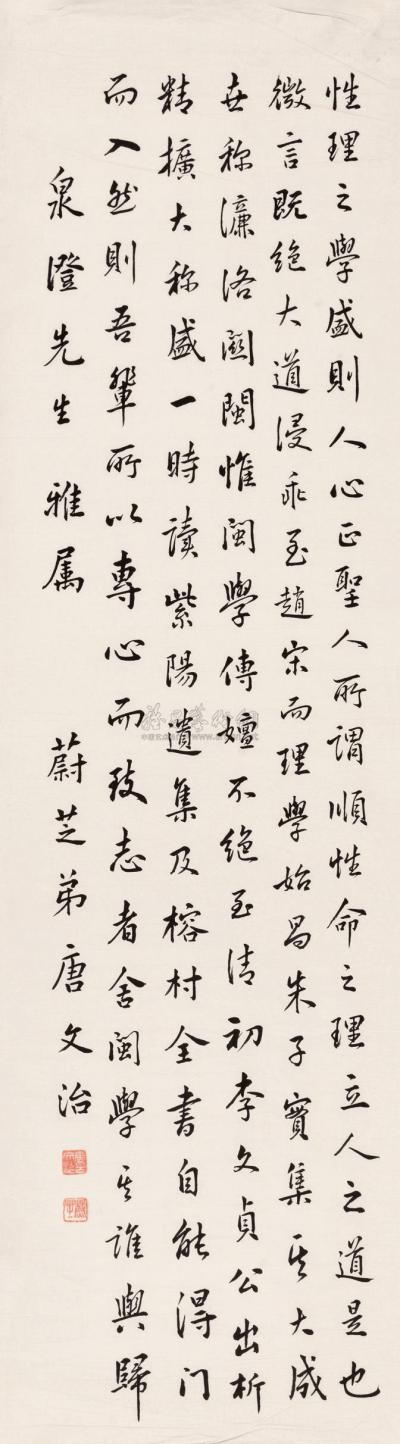 性理之學盛則人心正聖人所謂順性命之理立人之道是也
微言既絕大道浸乖至趙宋而理學始昌朱子實集其大成
世称濂洛關閩惟閩學傳嬗不絕至清初李文貞公出析
精擴大称盛一時讀紫陽遺集及榕村全書自能得门
而入然則吾輩所以專心而致志者舍閩學其誰與歸
泉澄先生雅属
蔚芝弟唐文治